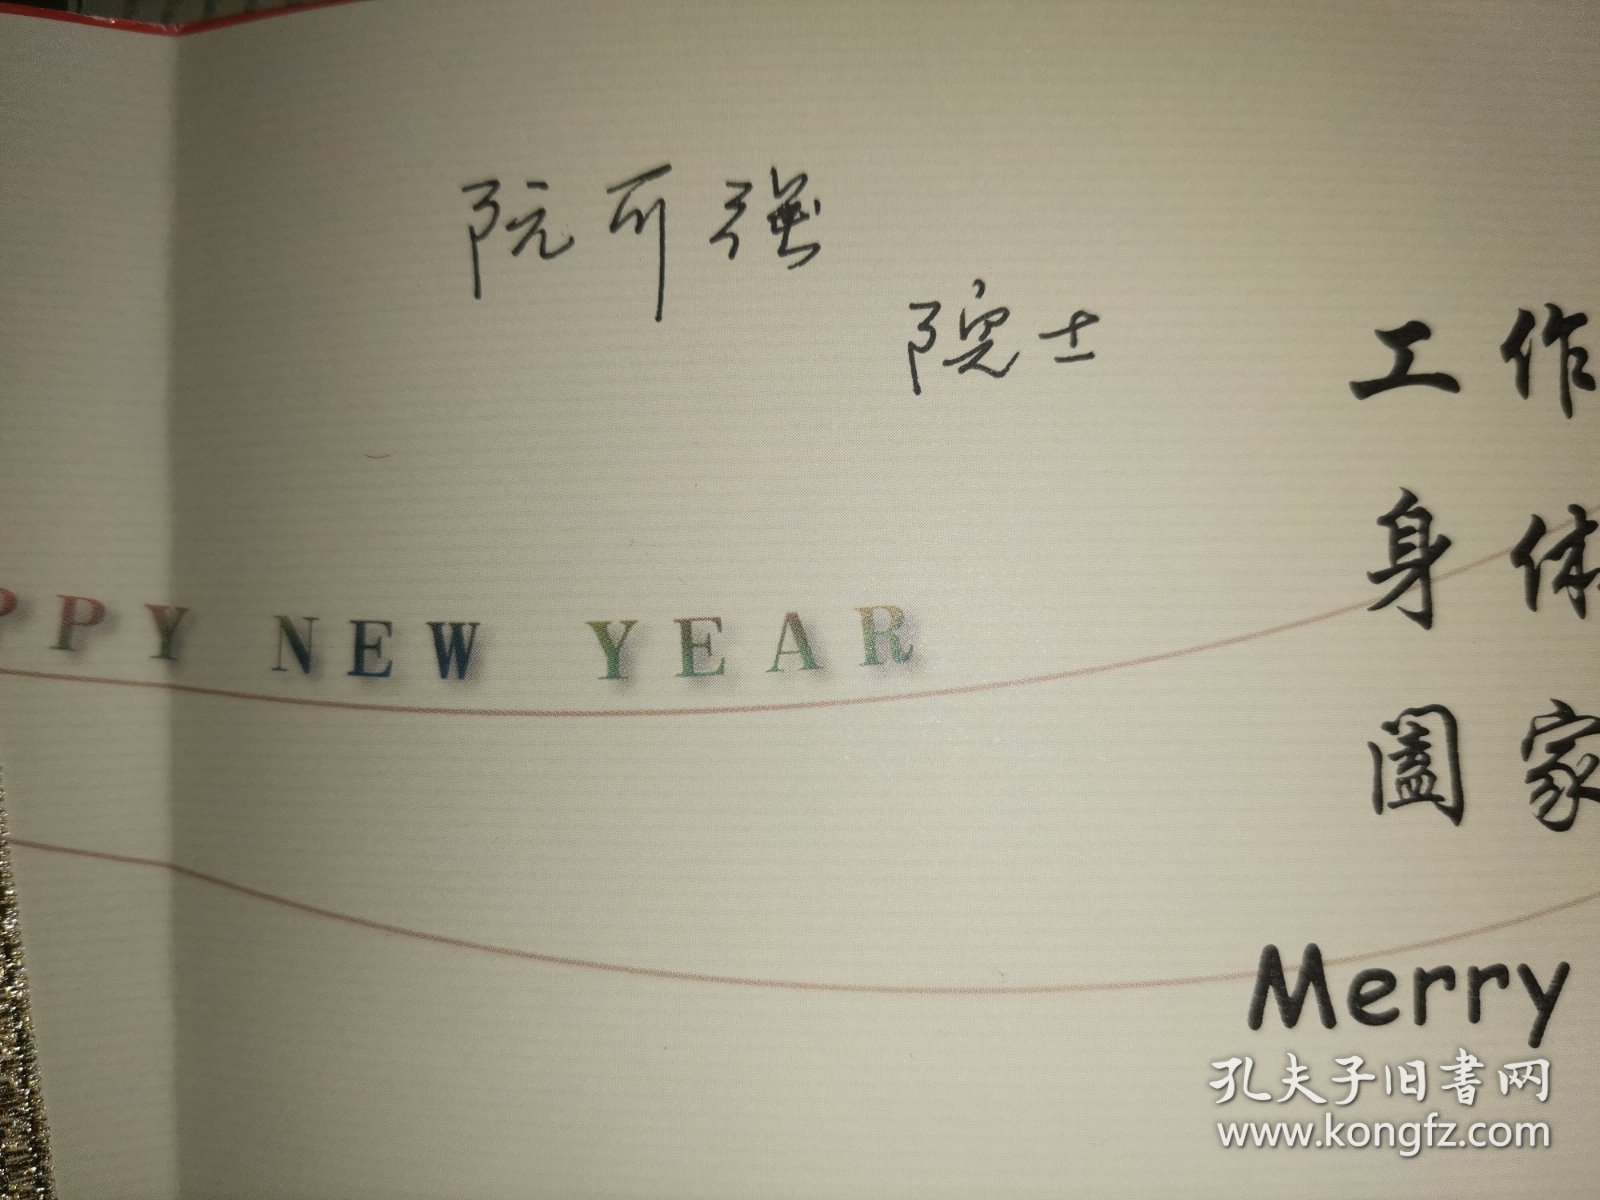 阮可強
院士
工作
身体
PPY NEW YEAR
阖家
Merry
孔夫子旧書网
www.kongfz.com